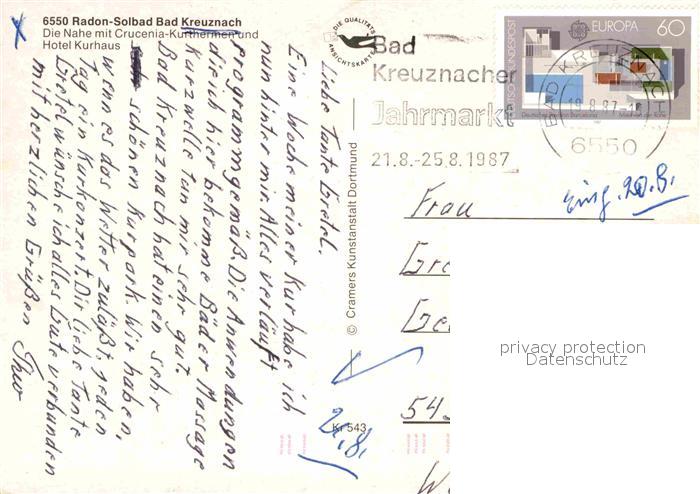 6550 Radon-Solbad Bad Kreuznach
Die Nahe mit Crucenia-Kurthermen und
Hotel Kurhaus
DIE QUALITÄTS
ANSICHTSKARTE
Liebe Tante Gretel.
Eine Woche meiner Kur habe ich
nun hinter mir. Alles verläuft
programmgemäß. Die Anwendungen
die ich hier bekomme Bäder Massage
Kurzwelle tun mir sehr gut.
Bad Kreuznach hat einen sehr
schönen Kurpark. Wir haben,
wenn es das Wetter zuläßt, jeden
Tag ein Kurkonzert. Dir liebe Tante
Gretel wünsche ich alles Gute verbunden
mit herzlichen Grüßen Theo
© Cramers Kunstanstalt Dortmund
Kr 543
Bad
Kreuznacher
Jahrmarkt
21.8.-25.8.1987
DEUTSCHE BUNDESPOST
EUROPA 60
Deutscher Pavillon Barcelona
BAD KREUZNACH
19.8.87
6550
Eing. 20.8.
Frau
Gre
Ge
545
W
21.8.
privacy protection
Datenschutz